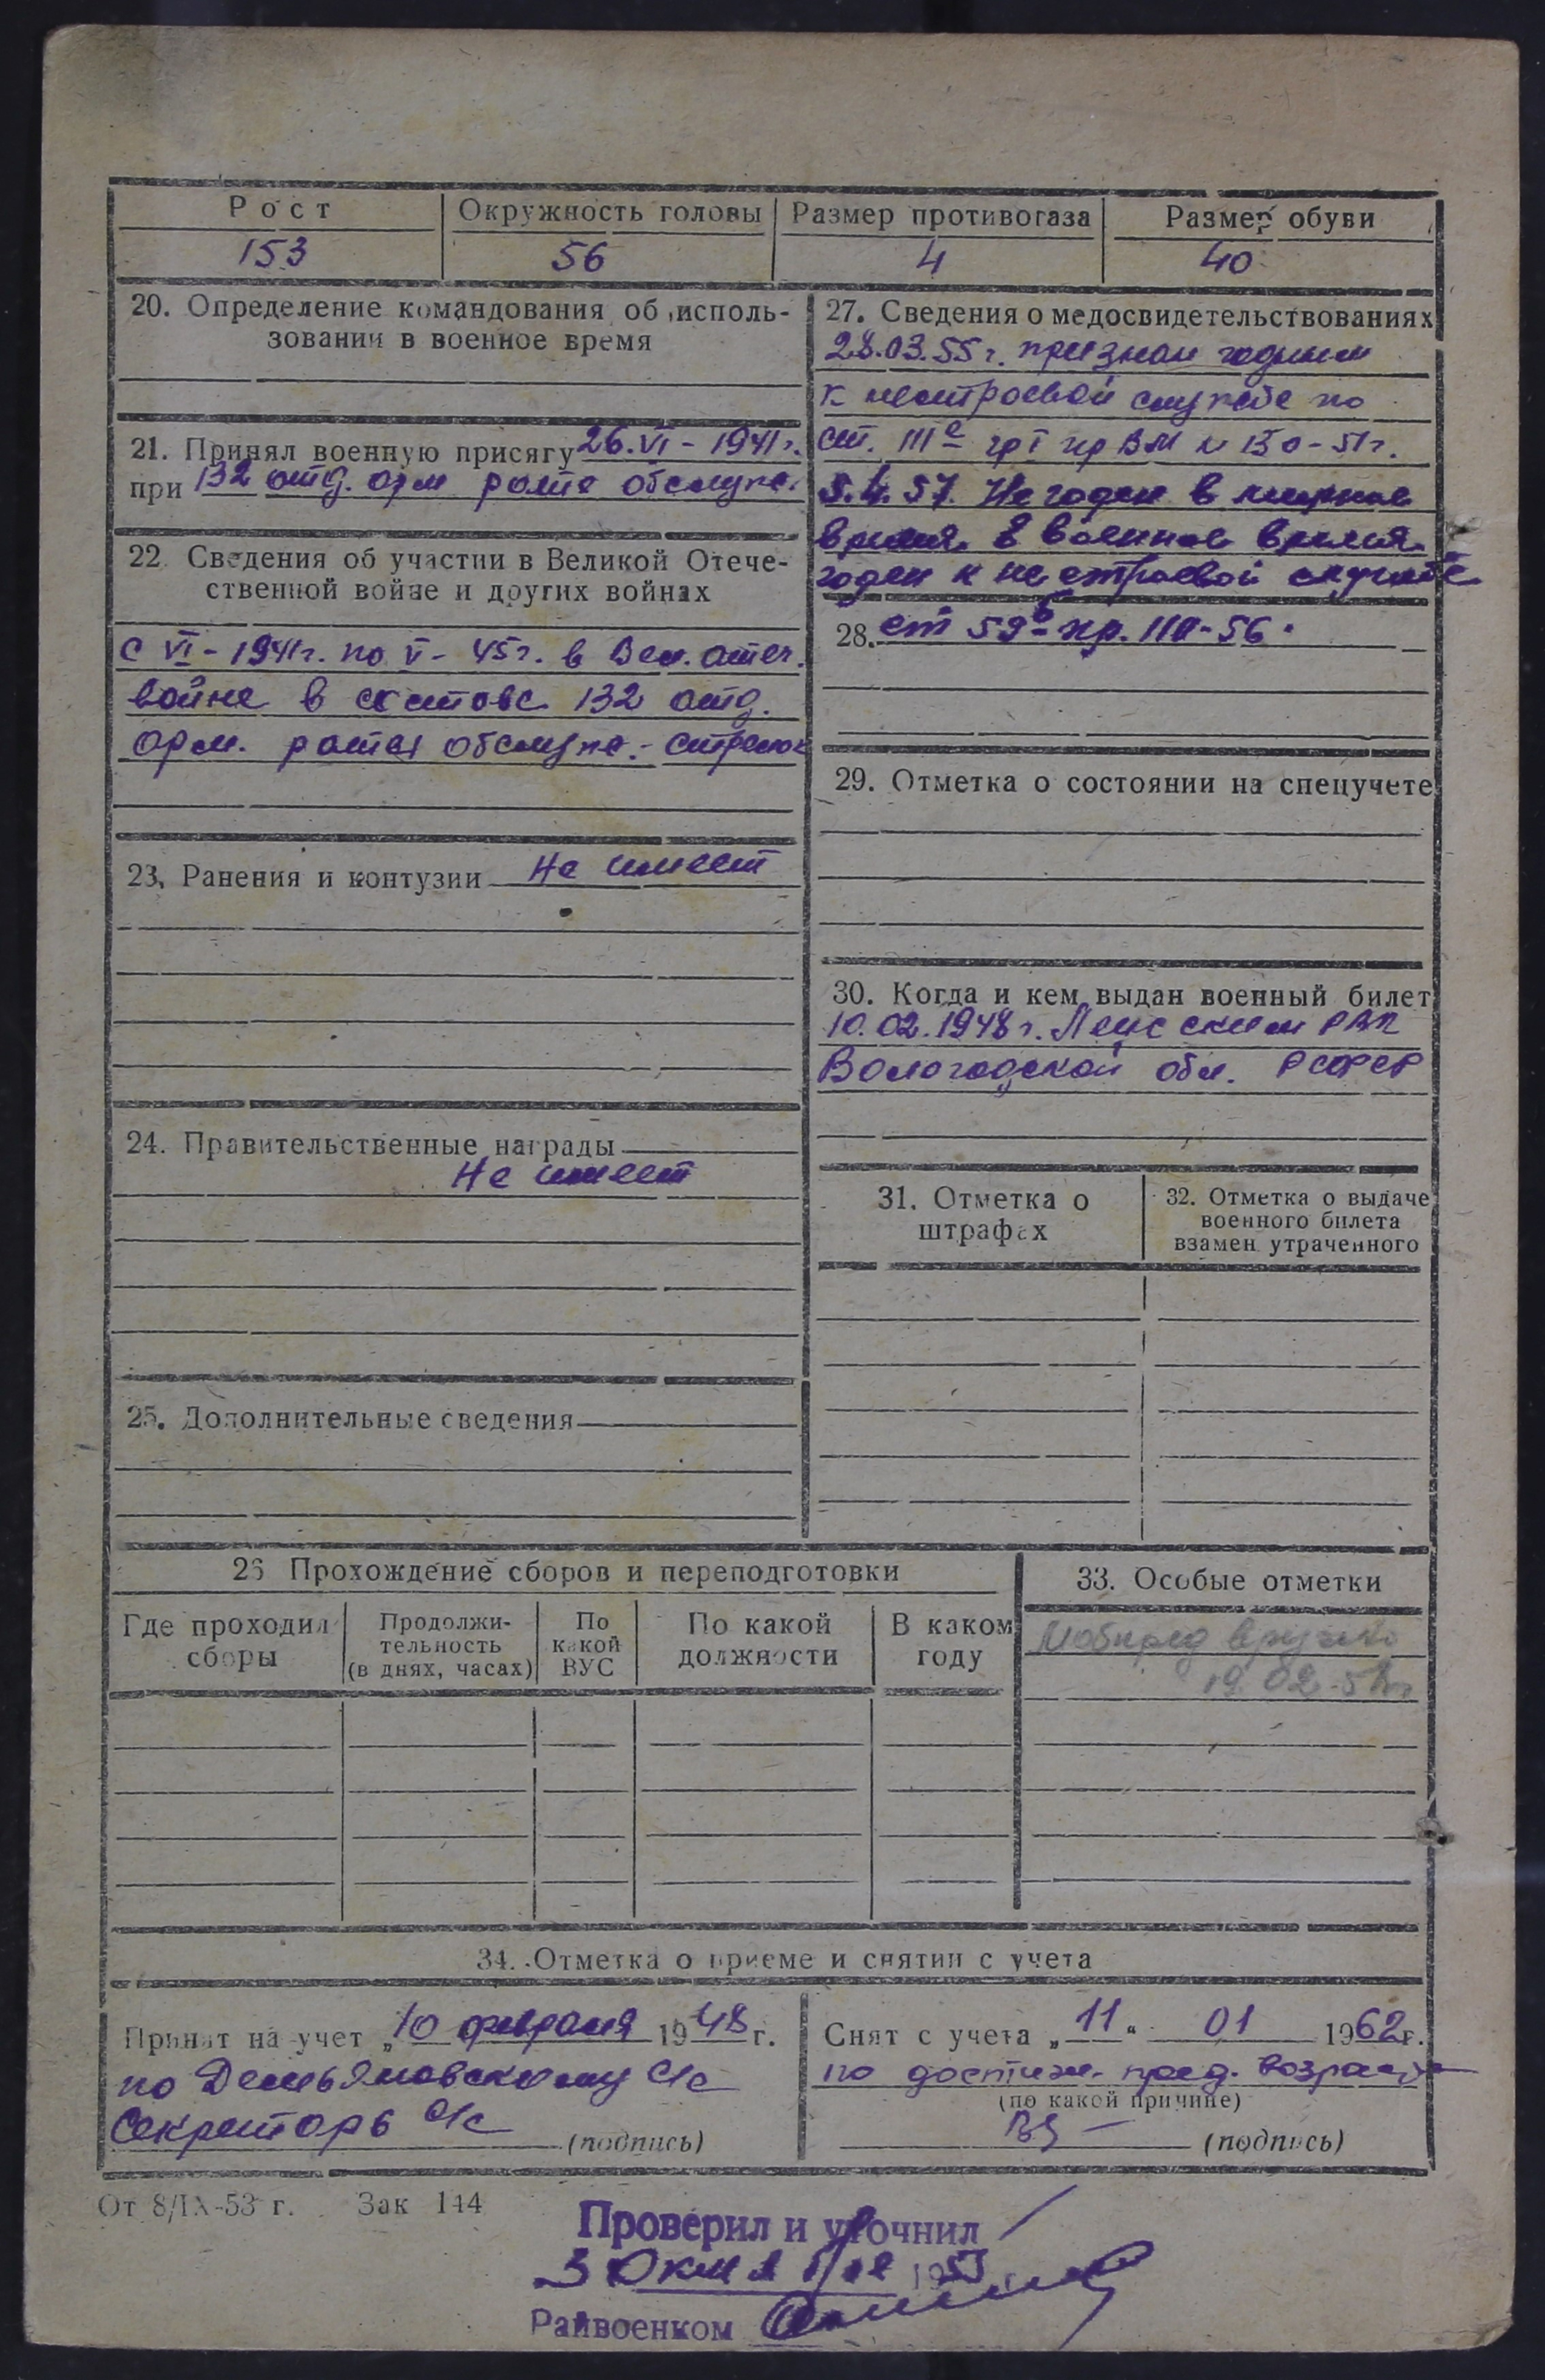 Рост
Окружность головы
Размер противогаза
Размер обуви
153
56
4
40
20. Определение командования об исполь-
зовании в военное время
21. Принял военную присягу 26.VI-1941г.
при 132 отд. арм роте обслуж.
22. Сведения об участии в Великой Отече-
ственной войне и других войнах
с VI-1941г. по V-45г. в Вел. отеч.
войне в составе 132 отд.
арм. роты обслуж.- стрелок
23. Ранения и контузии Не имеет
24. Правительственные награды
Не имеет
25. Дополнительные сведения
27. Сведения о медосвидетельствованиях
28.03.55г. признан годным
к нестроевой службе по
ст. III гр I пр ВМ N 150-51г.
5.4.57. Не годен в мирное
время. В военное время
годен к нестроевой службе
28. ст 59 в пр. 110-56.
29. Отметка о состоянии на спецучете
30. Когда и кем выдан военный билет
10.02.1948г. Ленским РВК
Вологодской обл. РСФСР
31. Отметка о
штрафах
32. Отметка о выдаче
военного билета
взамен утраченного
26 Прохождение сборов и переподготовки
Где проходил
сборы
Продолжи-
тельность
(в днях, часах)
По
какой
ВУС
По какой
должности
В каком
году
33. Особые отметки
Мобпред вручено
19.02.5
34. Отметка о приеме и снятии с учета
Принят на учет „10 февраля 1948 г.
по Демьяновскому с/с
Секретарь с/с (подпись)
Снят с учета „11“ 01 1962г.
по достиж. пред. возраста
(по какой причине)
(подпись)
От 8/IX-53 г. Зак 144
Проверил и уточнил
3 Октября 1953
Райвоенком